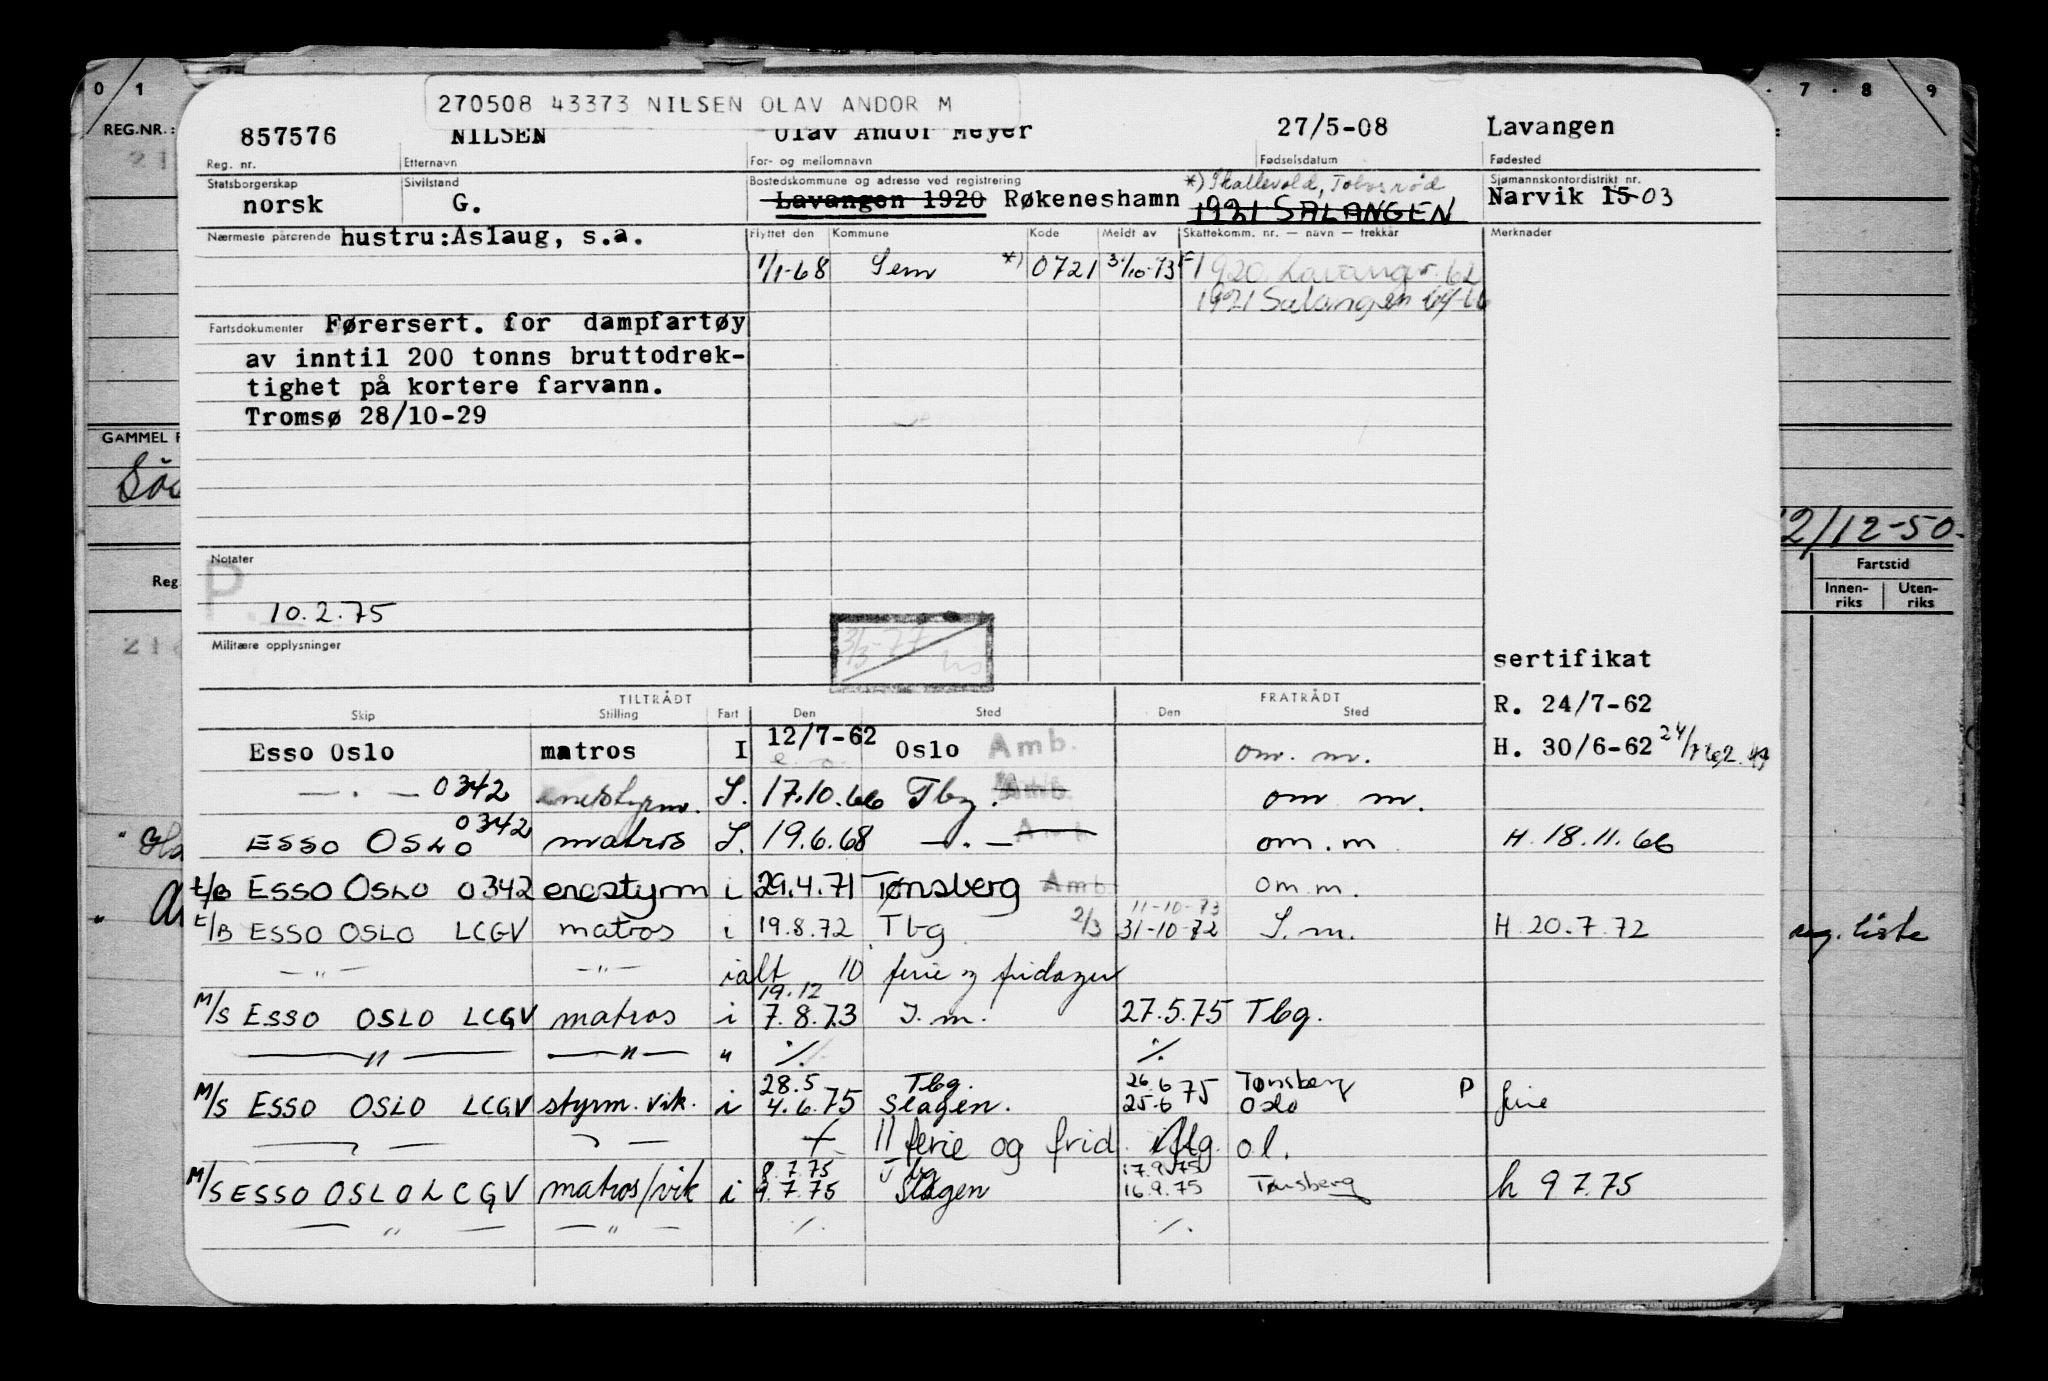 0 1 7 . 8 . 9
270508 43373 NILSEN OLAV ANDOR M
REG.NR.:
857576 NILSEN Olav Andor Meyer 27/5-08 Lavangen
Reg. nr. Etternavn For- og mellomnavn Fødselsdatum Fødested
Statsborgerskap Sivilstand Bostedskommune og adresse ved registrering *) Skallevold, Tolvsrød Sjømannskontordistrikt nr.
norsk G. Lavangen 1920 Røkeneshamn 1921 SALANGEN Narvik 15 03
Nærmeste pårørende hustru:Aslaug, s.a. Flyttet den Kommune Kode Meldt av Skattekomm. nr. — navn — trekkår Merknader
1/1-68 Sem *) 0721 31/10-73 1920 Lavangen 62
1921 Salangen 64-66
Fartsdokumenter Førersert. for dampfartøy
av inntil 200 tonns bruttodrek-
tighet på kortere farvann.
Tromsø 28/10-29
GAMMEL
2/12-50.
Notater
P.
10.2.75
Reg. Fartstid
Innen-riks Uten-riks
Militære opplysninger
3/5-77
sertifikat
TILTRÅDT FRATRÅDT
Skip Stilling Fart Den Sted Den Sted
R. 24/7-62
Esso Oslo matros I 12/7-62 Oslo Amb. om. m. H. 30/6-62
— . — 0342 enestyrm. S. 17.10.66 Tbg. Amb. om m.
ESSO OSLO 0342 matros S. 19.6.68 — . — om. m H. 18.11.66
t/B ESSO OSLO 0342 enestyrm i 29.4.71 Tønsberg Amb. om m.
11-10-73
t/B ESSO OSLO LCGV matros i 19.8.72 Tbg 2/3 31-10-72 S. m. H. 20.7.72 reg. liste
— " — — " — ialt 10 ferie og fridager
19.12
M/S ESSO OSLO LCGV matros i 7.8.73 S. m. 27.5.75 Tbg.
— " — — " — " ./. ./.
28.5 Tbg. 26.6 Tønsberg
M/S ESSO OSLO LCGV styrm. vik. i 4.6.75 Slagen. 25.6 75 Oslo P ferie
11 ferie og frid. iflg. ol.
8.7.75 Tbg 17.9.75
M/S ESSO OSLO LCGV matros/vik i 9.7.75 Slagen 16.9.75 Tønsberg h 9 7.75
— " — — " — ./. ./.